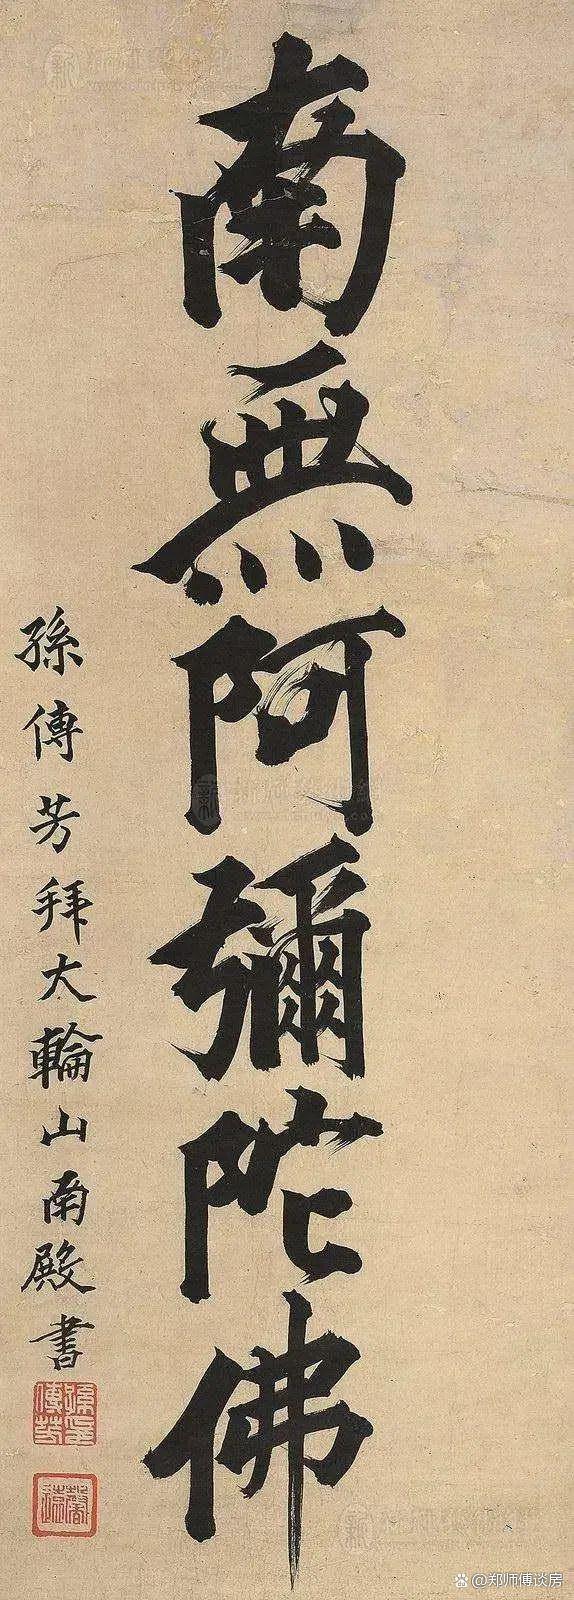 南無阿彌陀佛
孫傳芳拜大輪山南殿書
孫傳芳印
馨遠
@郑师傅谈房